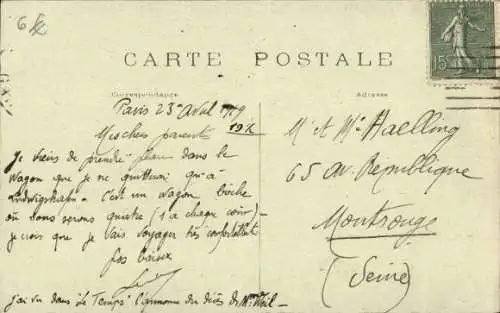 CARTE POSTALE
Correspondance
Adresse
15
Paris 23 Avril 1919
19h
Mes chers parents
Je viens de prendre place dans le
wagon que je ne quitterai qu'à
Ludwigshafen. C'est un wagon boche
où nous serons quatre (1 à chaque coin) -
je crois que je vais voyager très confortablement
Gros baisers
J'ai vu dans "Le Temps" l'annonce du décès de Mr Weil -
M et Me Haelling
65 Av. République
Montrouge
(Seine)